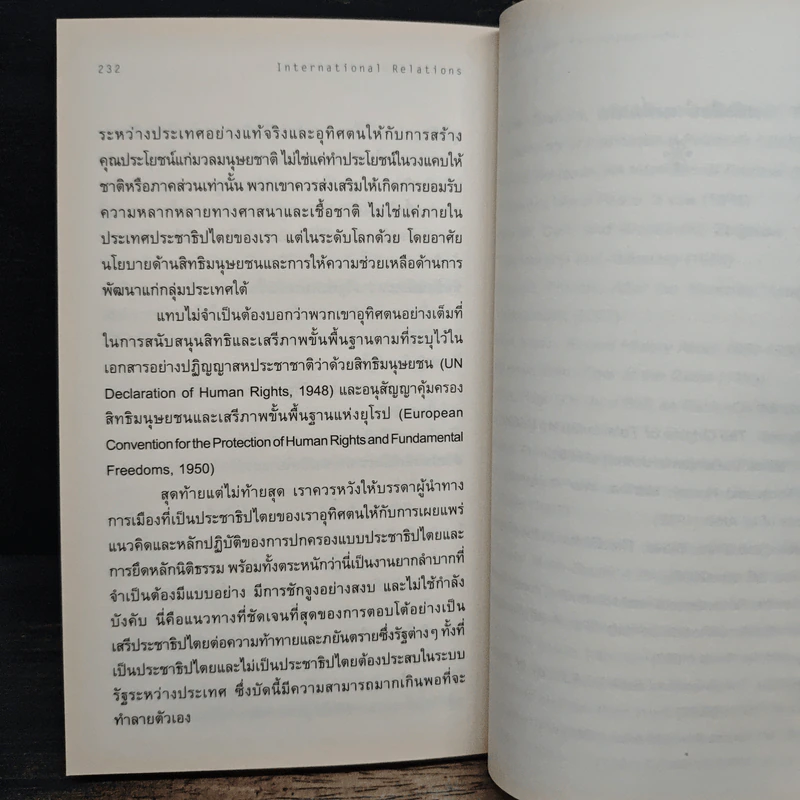 232 International Relations
ระหว่างประเทศอย่างแท้จริงและอุทิศตนให้กับการสร้าง
คุณประโยชน์แก่มวลมนุษยชาติ ไม่ใช่แค่ทำประโยชน์ในวงแคบให้
ชาติหรือภาคส่วนเท่านั้น พวกเขาควรส่งเสริมให้เกิดการยอมรับ
ความหลากหลายทางศาสนาและเชื้อชาติ ไม่ใช่แค่ภายใน
ประเทศประชาธิปไตยของเรา แต่ในระดับโลกด้วย โดยอาศัย
นโยบายด้านสิทธิมนุษยชนและการให้ความช่วยเหลือด้านการ
พัฒนาแก่กลุ่มประเทศใต้
แทบไม่จำเป็นต้องบอกว่าพวกเขาอุทิศตนอย่างเต็มที่
ในการสนับสนุนสิทธิและเสรีภาพขั้นพื้นฐานตามที่ระบุไว้ใน
เอกสารอย่างปฏิญญาสหประชาชาติว่าด้วยสิทธิมนุษยชน (UN
Declaration of Human Rights, 1948) และอนุสัญญาคุ้มครอง
สิทธิมนุษยชนและเสรีภาพขั้นพื้นฐานแห่งยุโรป (European
Convention for the Protection of Human Rights and Fundamental
Freedoms, 1950)
สุดท้ายแต่ไม่ท้ายสุด เราควรหวังให้บรรดาผู้นำทาง
การเมืองที่เป็นประชาธิปไตยของเราอุทิศตนให้กับการเผยแพร่
แนวคิดและหลักปฏิบัติของการปกครองแบบประชาธิปไตยและ
การยึดหลักนิติธรรม พร้อมทั้งตระหนักว่านี่เป็นงานยากลำบากที่
จำเป็นต้องมีแบบอย่าง มีการชักจูงอย่างสงบ และไม่ใช้กำลัง
บังคับ นี่คือแนวทางที่ชัดเจนที่สุดของการตอบโต้อย่างเป็น
เสรีประชาธิปไตยต่อความท้าทายและภยันตรายซึ่งรัฐต่างๆ ทั้งที่
เป็นประชาธิปไตยและไม่เป็นประชาธิปไตยต้องประสบในระบบ
รัฐระหว่างประเทศ ซึ่งบัดนี้มีความสามารถมากเกินพอที่จะ
ทำลายตัวเอง